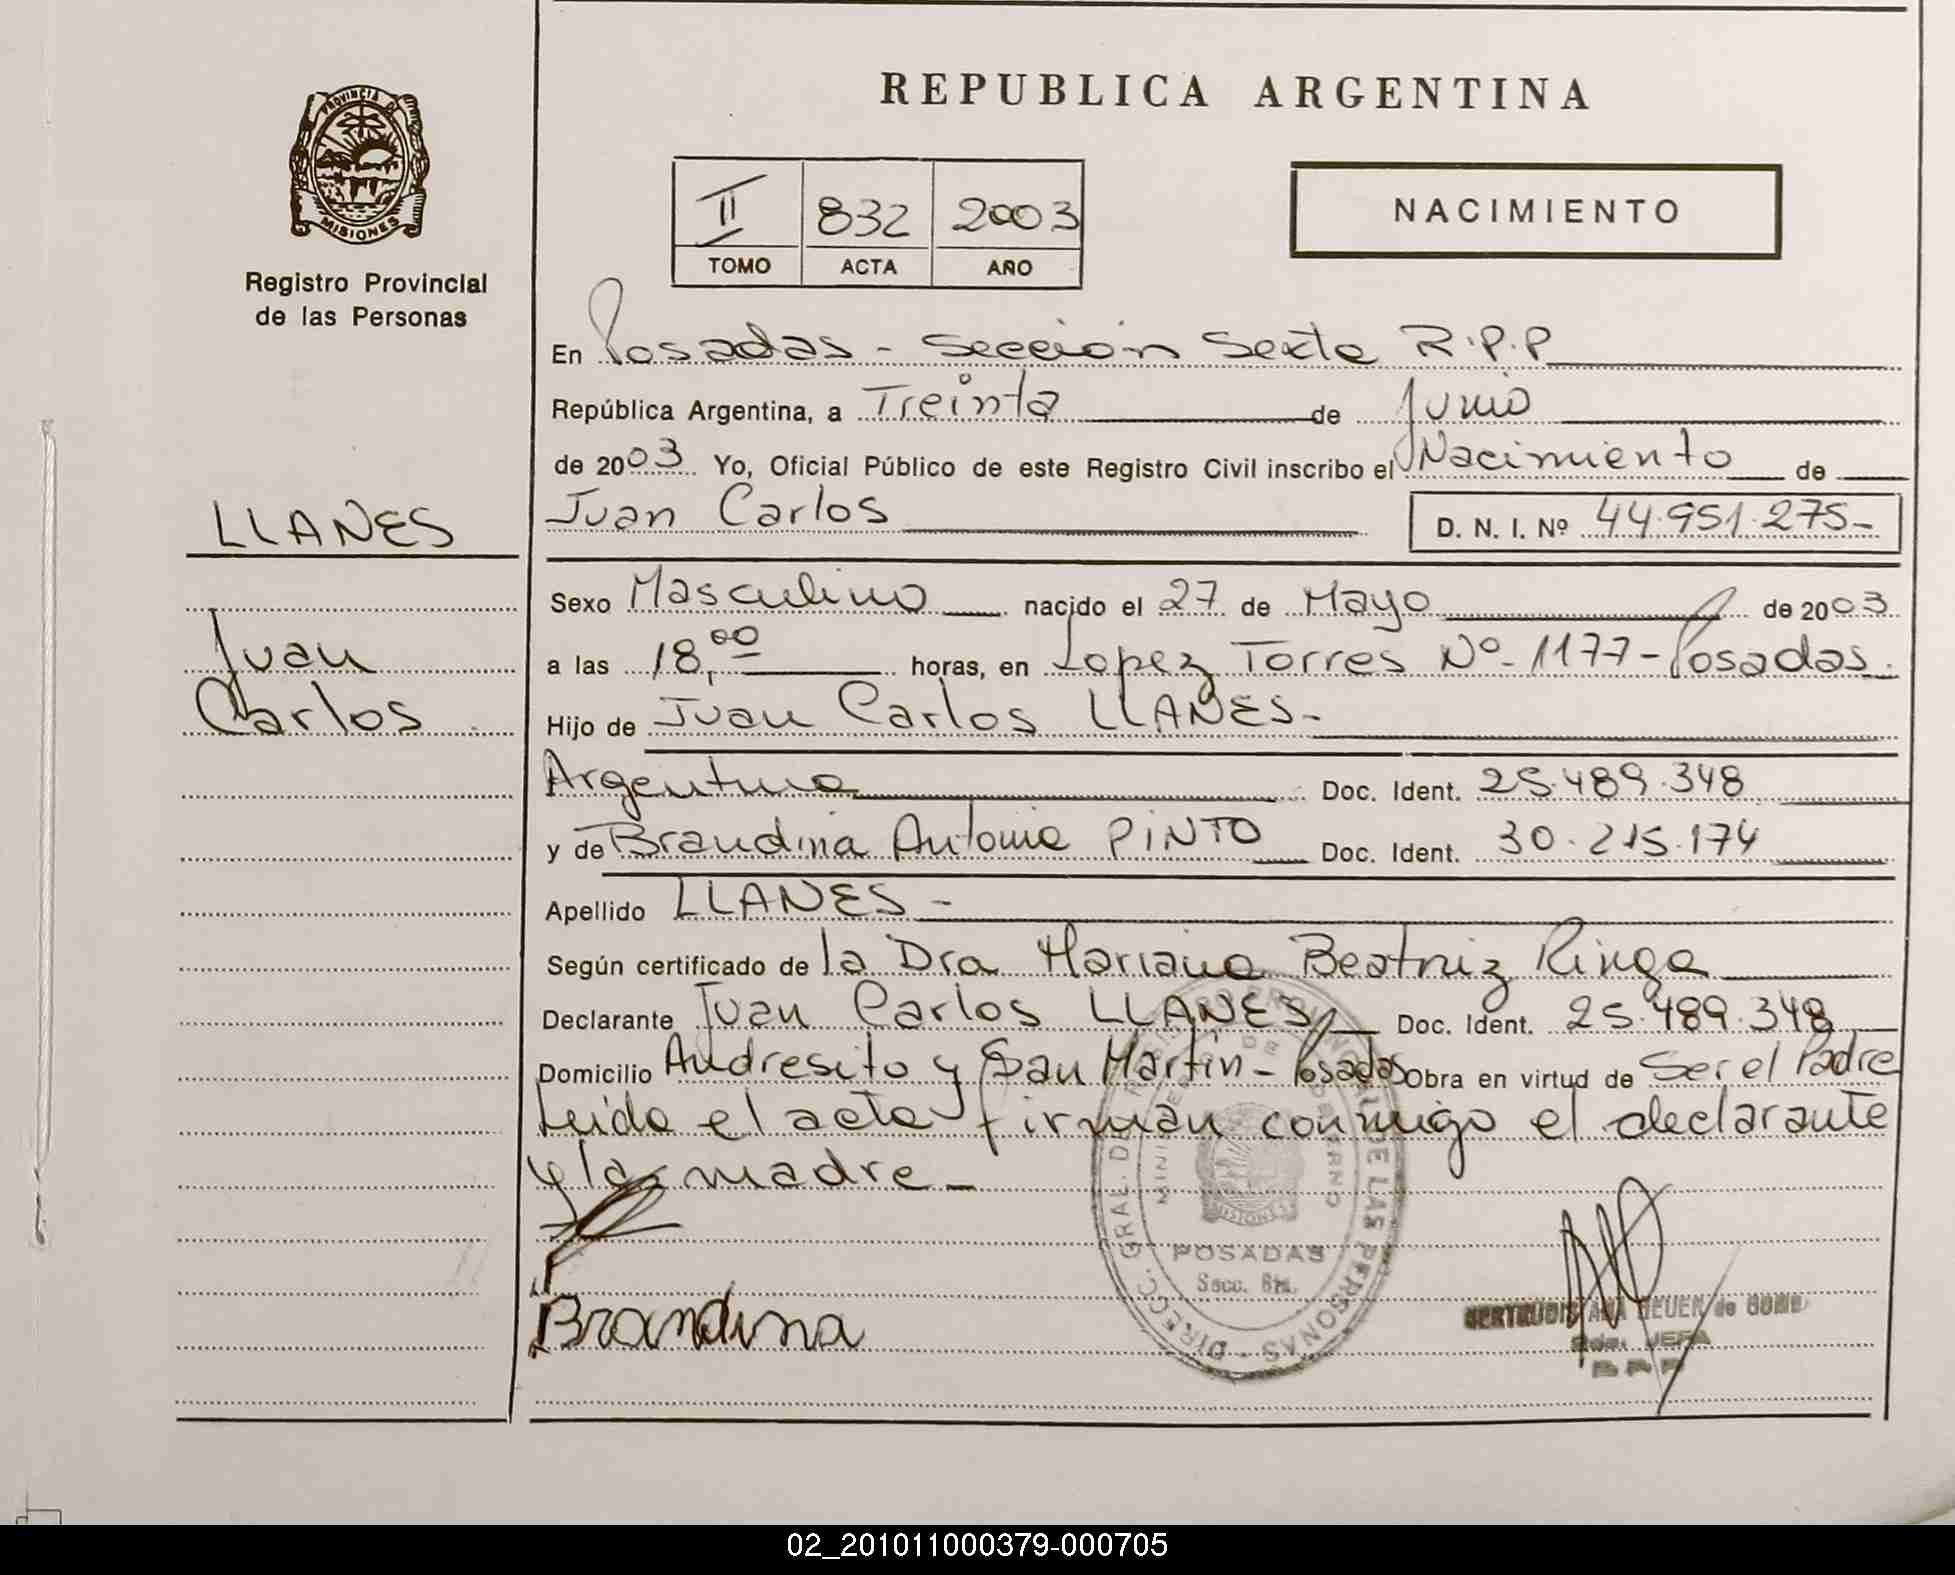 REPUBLICA ARGENTINA
PROVINCIA DE MISIONES
Registro Provincial
de las Personas
II 832 2003
TOMO ACTA AÑO
NACIMIENTO
En Posadas - Sección Sexta R.P.P
República Argentina, a Treinta de Junio
de 2003 Yo, Oficial Público de este Registro Civil inscribo el Nacimiento de
Juan Carlos D. N. I. Nº 44.951.275-
LLANES
Juan
Carlos
Sexo Masculino nacido el 27 de Mayo de 2003
a las 18,00 horas, en Lopez Torres Nº 1177-Posadas.
Hijo de Juan Carlos LLANES-
Argentina Doc. Ident. 25.489.348
y de Brandina Antonia PINTO Doc. Ident. 30.215.174
Apellido LLANES-
Según certificado de la Dra Mariana Beatriz Ringa
Declarante Juan Carlos LLANES Doc. Ident. 25.489.348
Domicilio Andresito y San Martín - Posadas Obra en virtud de Ser el Padre
Leída el acta firman conmigo el declarante
y la madre-
Brandina
DIRECC. GRAL. DE REGISTRO PROVINCIAL DE LAS PERSONAS
MINISTERIO DE GOBIERNO
MISIONES
POSADAS
Secc. 6ta.
GERTRUDIS ANA
JEFA
02_201011000379-000705